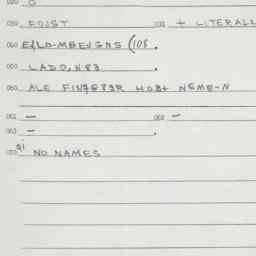 020 0
030 FOJST 031 + LITERALL
040 E/LO-MBEUGNS (108.
050 LADO, N83.
060 ALE FINGER3R HOB+ NEME-N
061 — 062 —
063 —.
070 NO NAMES